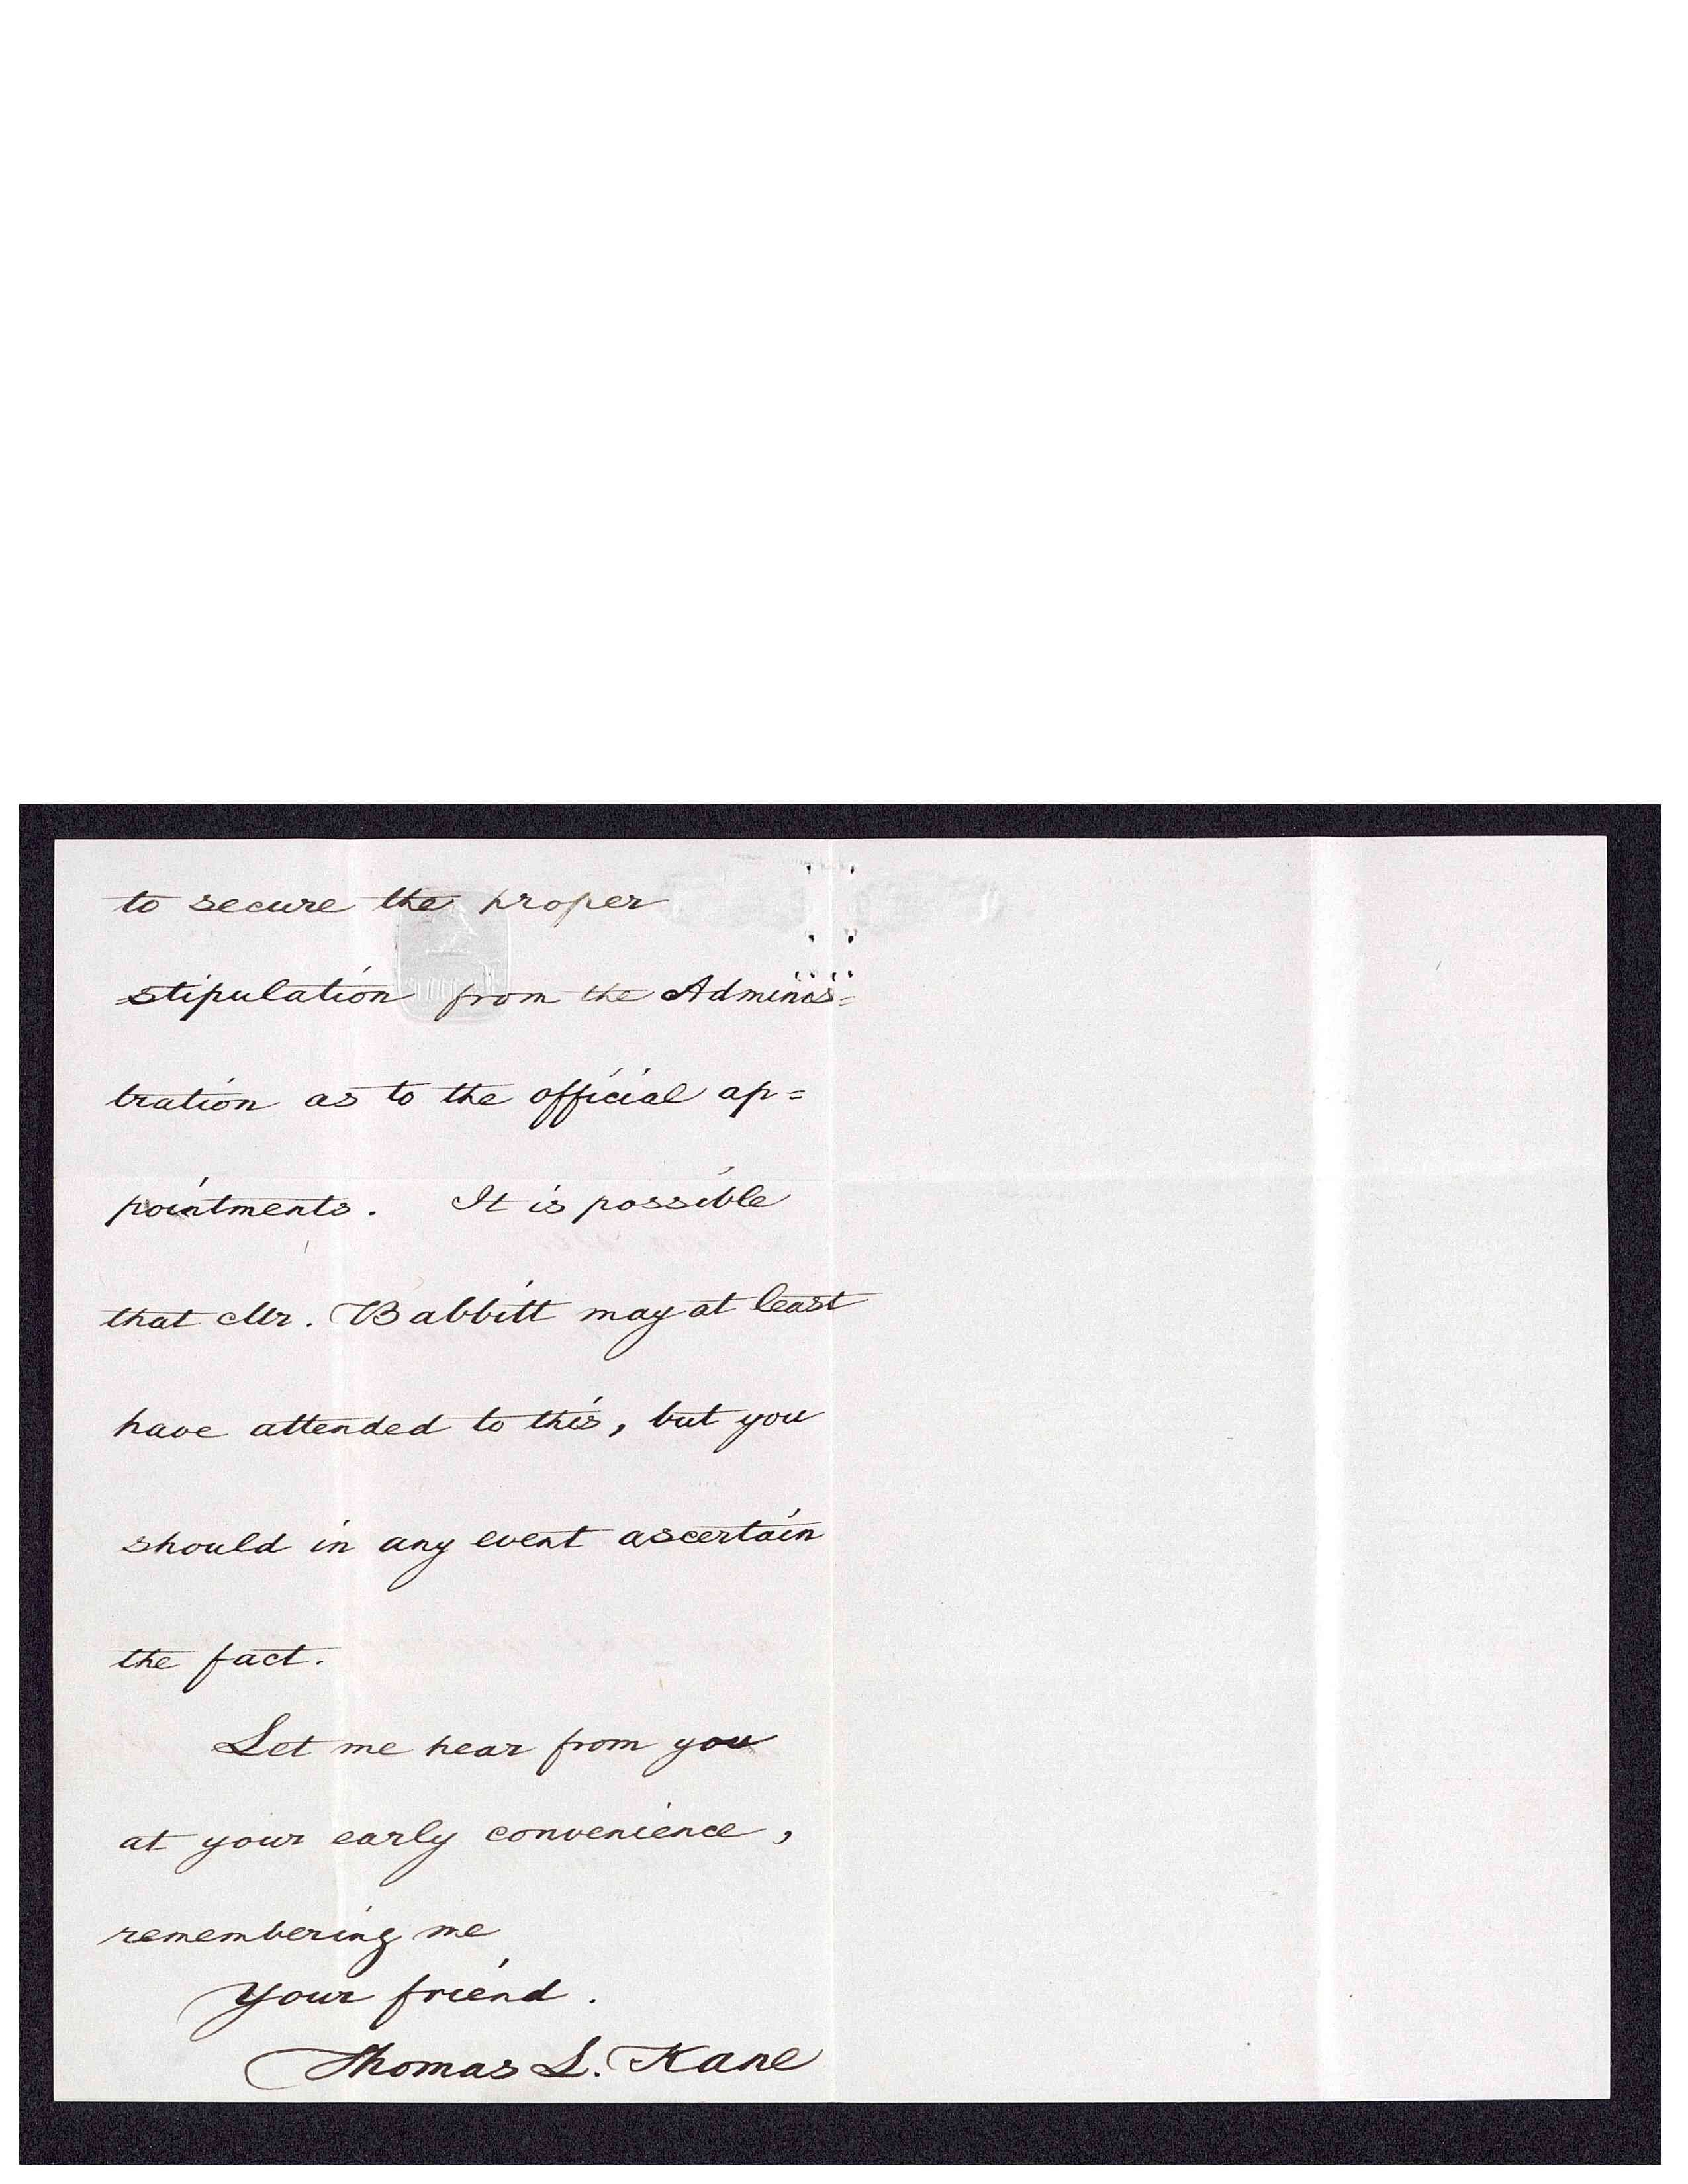 to secure the proper
stipulation from the Adminis=
tration as to the official ap=
pointments. It is possible
that Mr. Babbitt may at least
have attended to this, but you
should in any event ascertain
the fact.
Let me hear from you
at your early convenience,
remembering me
Your friend.
Thomas L. Kane